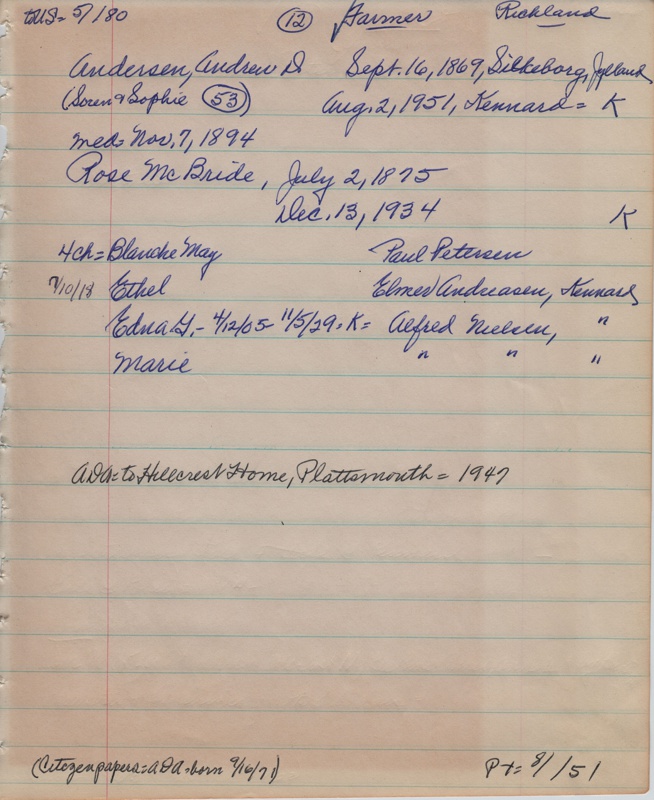 to US = 5/ /80 (12) Farmer Richland
Andersen, Andrew D. Sept. 16, 1869, Silkeborg, Jylland
(Soren & Sophie (53)) Aug. 2, 1951, Kennard = K
med = Nov. 7, 1894
Rose McBride, July 2, 1875
Dec. 13, 1934 K
4ch = Blanche May Paul Petersen
7/10/18 Ethel Elmer Andreasen, Kennard
Edna G. - 4/12/05 - 11/5/29 = K = Alfred Nielsen, "
Marie " " "
ADA = to Hillcrest Home, Plattsmouth = 1947
(Citizen papers = ADA = born 9/16/71) P+ = 8/ /51